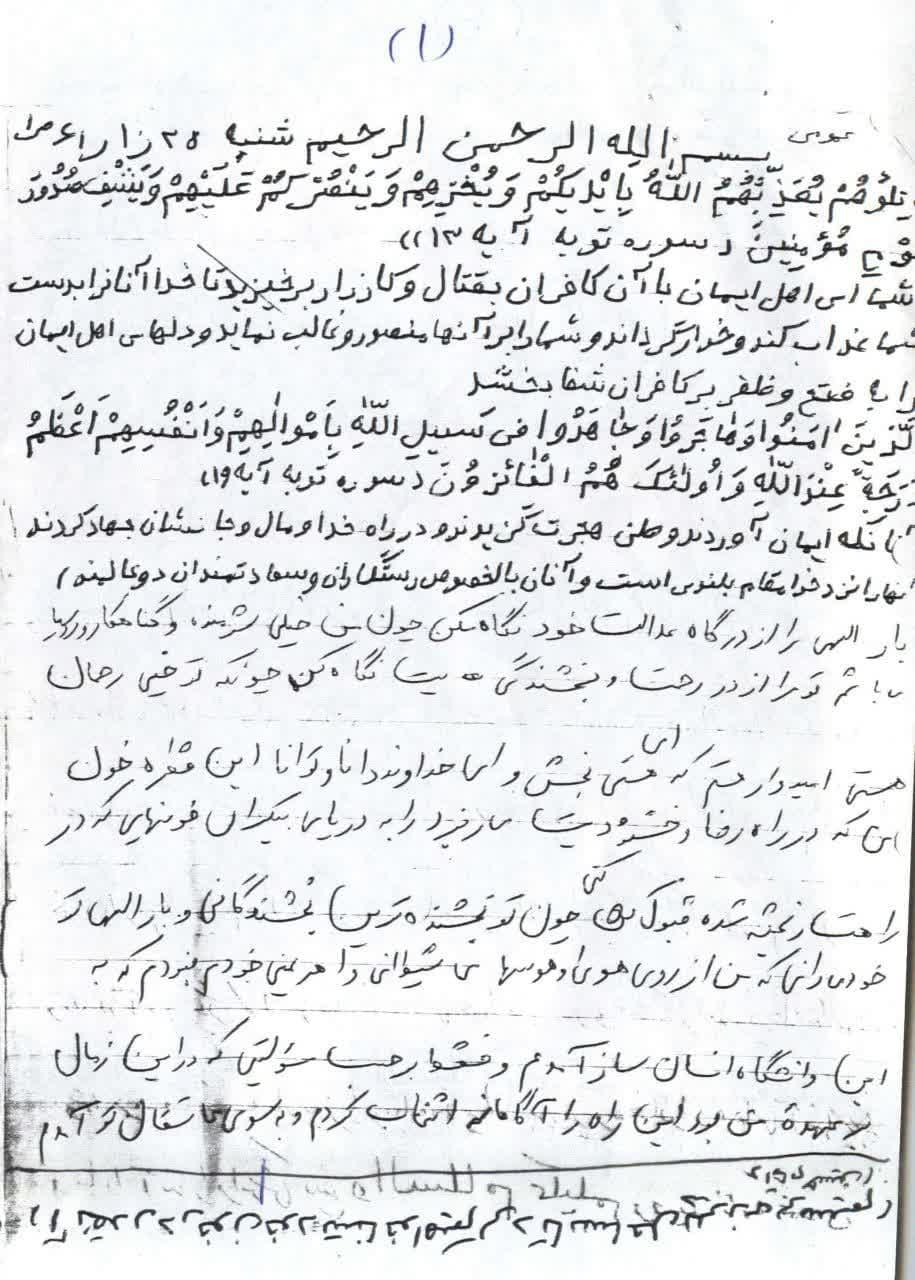 (۱)
بسم الله الرحمن الرحیم شنبه
تِلُوهُمْ یُعَذِّبْهُمُ اللّهُ بِاَیْدیکُمْ وَیُخْزِهِمْ وَیَنْصُرْکُمْ عَلَیْهِمْ وَیَشْفِ صُدُورَ
قَوْمٍ مُؤْمِنینَ (سوره توبه آیه ۱۳))
شما ای اهل ایمان با آن کافران بقتال و کارزار برخیزید تا خدا آنانرا بدست
شما عذاب کند و خوار گرداند و شما را بر آنها منصور و غالب نماید و دلهای اهل ایمان
را به فتح و ظفر بر کافران شفا بخشد
اَلَّذینَ امَنُوا وَهاجَرُوا وَجاهَدُوا فی سَبیلِ اللّهِ بِاَمْوالِهِمْ وَاَنْفُسِهِمْ اَعْظَمُ
دَرَجَةً عِنْدَاللّهِ وَاُولئکَ هُمُ الْفائزُونَ (سوره توبه آیه ۱۹)
آنانکه ایمان آوردند و وطن هجرت گزیدند و در راه خدا و مال و جانشان جهاد کردند
آنها را نزد خدا مقام بلندی است و آنان بالخصوص رستگاران و سعادتمندان دو عالمند)
بار الهی مرا از درگاه عدالت خود نگاه مکن چون من خیلی شرمنده و گناهکار و روسیاه
می باشم تو مرا از در رحمت و بخشندگی ات نگاه کن چونکه تو خیلی رحمان
هستی امیدوارم که ای هستی بخش و ای خداوند دانا و توانا این قطره خون
ای که در راه رضا و خشنودیت می ریزد را به دریای بیکران خونهایی که در
راهت ریخته شده قبول کنی چون تو بخشنده ترین بخشندگانی و بار الهی تو
خود میدانی که من از روی هوی و هوسهای شیطانی و اهریمنی خودم نبودم که به
این دانشگاه انسان ساز آمدم و فقط بر حسب مسئولیتی که در این زمان
بر عهدۀ من بود این راه را آگاهانه انتخاب کردم و به سوی تو آمدم